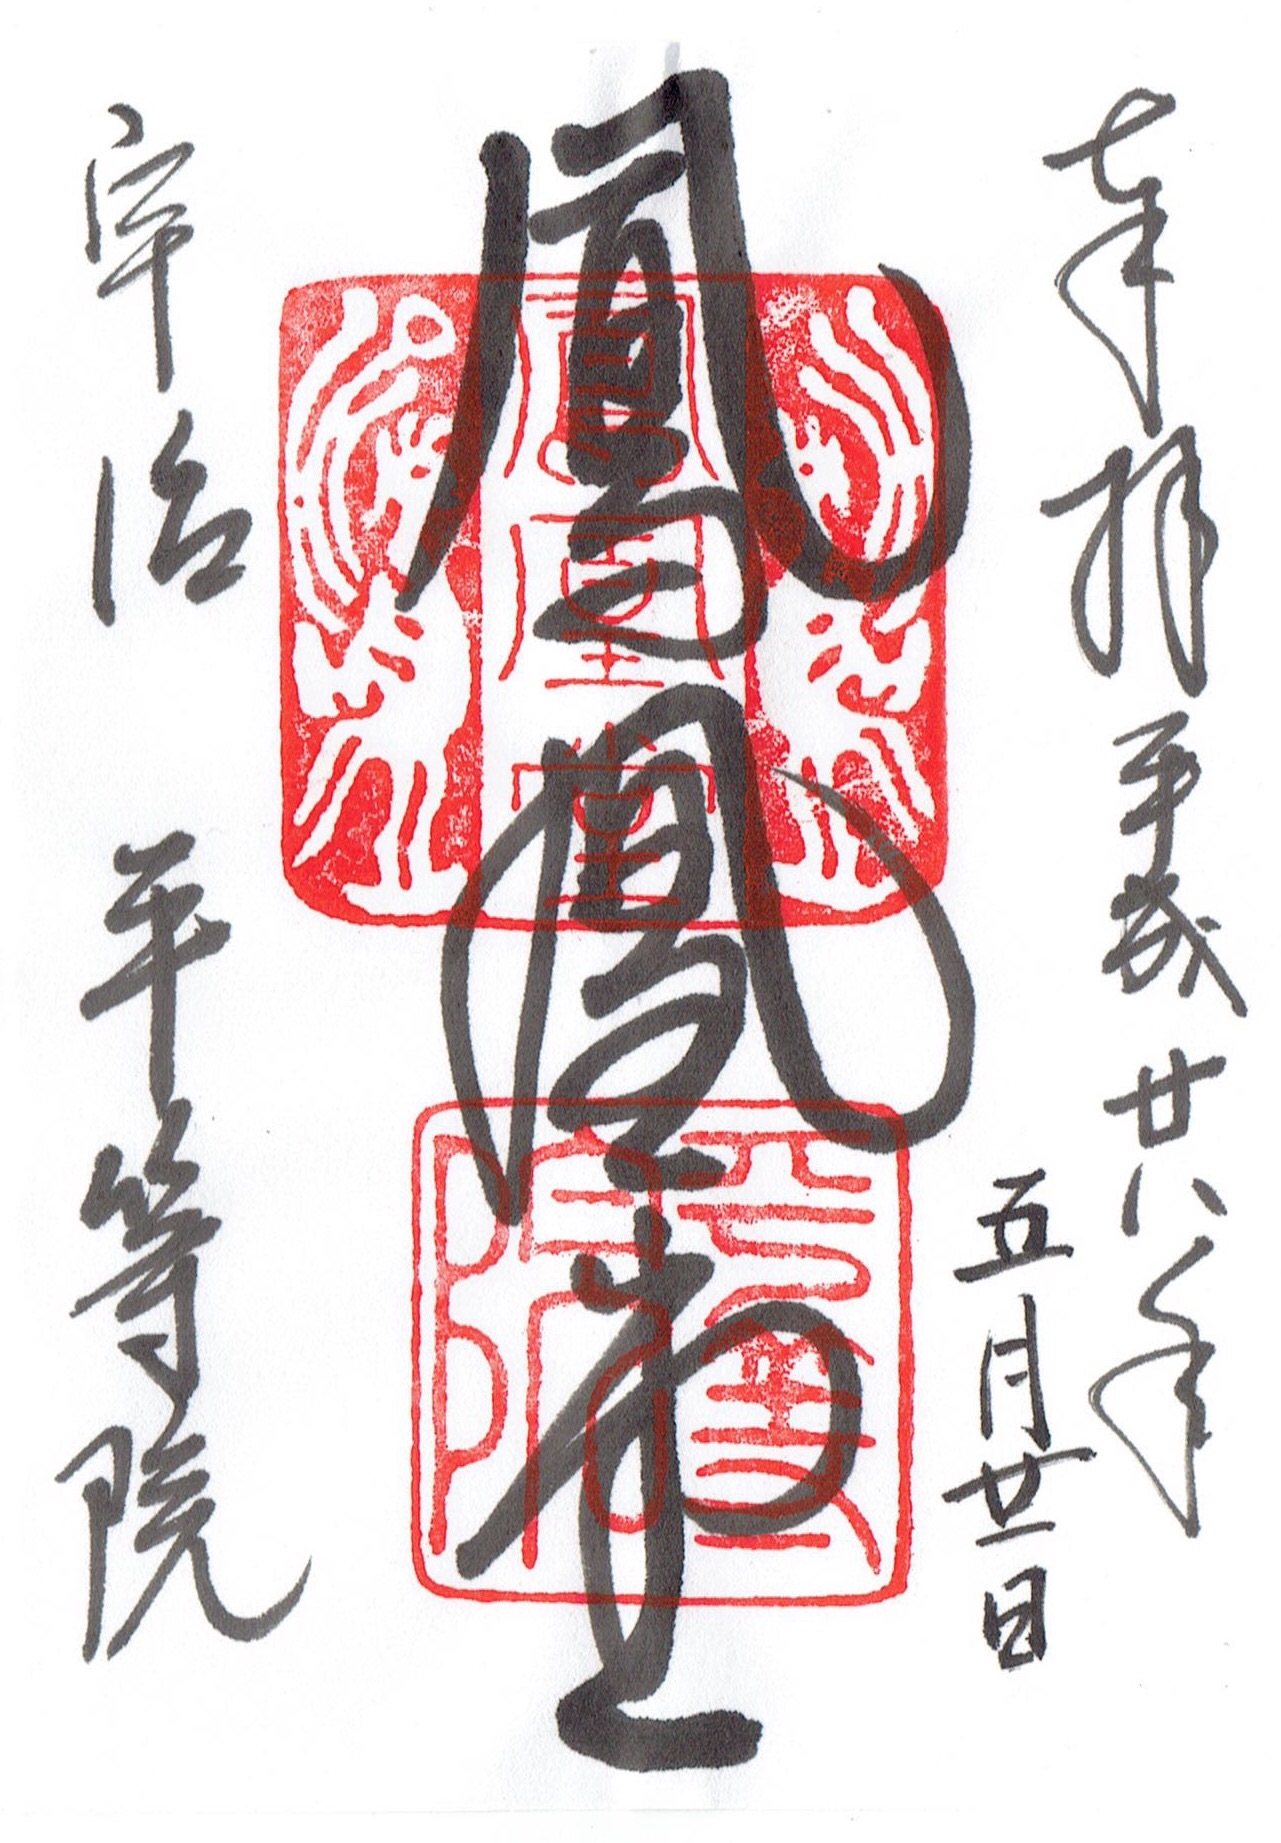 奉拝 平成廿八年
五月廿一日
鳳凰堂
鳳凰堂
平等院
宇治 平等院